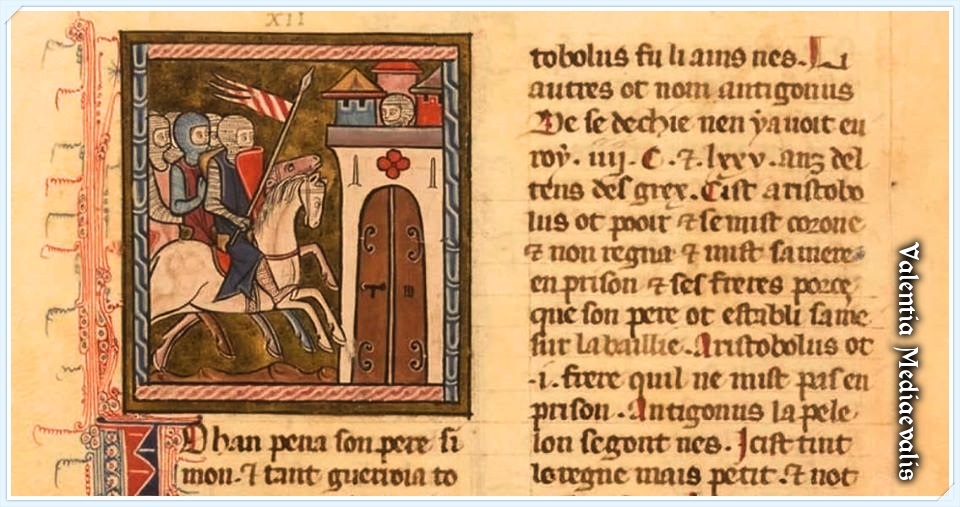 XII
Ohan pena son pere si
mon. ⁊ tant guerroia to
tobolus fu li ains nes. Li
autres ot nom antigonus
De se dechie nen y auoit eu
roy. iiij. C. ⁊. lxxv. anz del
tens des grex. Cist aristobo
lus ot pooir ⁊ se mist corone
⁊ non regna ⁊ mist sa mere
en prison ⁊ ses freres porce
que son pere ot establi sa me
sur la baillie. Aristobolus ot
.i. frere quil ne mist pas en
prison. Antigonus la pele
lon segont nes. Icist tint
lo regne mais petit. ⁊ not
Valentia Mediaevalis